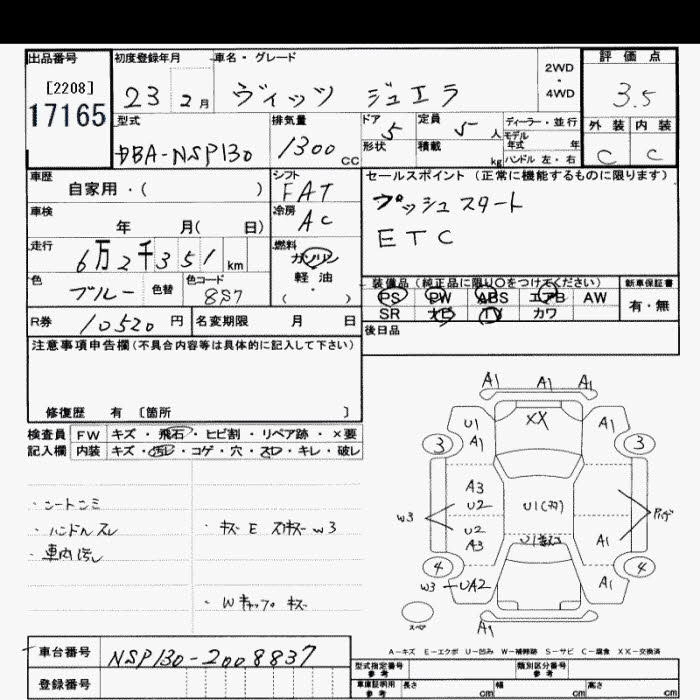 出品番号 初度登録年月 車名・グレード 2WD・4WD 評価点
[2208]
17165
23 2月 ヴィッツ ジュエラ 3.5
型式 排気量 ドア 定員 ディーラー・並行 外装 内装
DBA-NSP130 1300cc 5 5人 モデル年式 年 C C
形状 積載 kg ハンドル 左・右
車歴 シフト セールスポイント (正常に機能するものに限ります)
自家用・( ) FAT プッシュスタート
車検 冷房
年 月( 日) AC ETC
走行 燃料
6万2千351km ガソリン
軽油・( )
色 色替 色コード 装備品(純正品に限り○をつけてください) 新車保証書
ブルー 8S7 PS PW ABS エアB AW 有・無
SR ナビ TV カワ
R券 10520円 名変期限 月 日 後日品
注意事項申告欄(不具合内容等は具体的に記入して下さい)
修復歴 有 〔箇所 〕
検査員 FW キズ・飛石・ヒビ割・リペア跡・×要
記入欄 内装 キズ・汚レ・コゲ・穴・スレ・キレ・破レ
・シートシミ
・ハンドルスレ
・車内汚レ
・キズ E スリキズ W3
・Wキャップ キズ
A1 A1 A1
U1 XX A1
A1
3 3
A3
U2 U1
W3
U2 U1
A3 A1
4 4
W3 UA2 A1
スペア
A1
A-キズ E-エクボ U-凹み W-補修跡 S-サビ C-腐食 XX-交換済
車台番号 NSP130-2008837
型式指定番号 参考 類別区分番号 参考
登録番号 車庫証明用 参考 長さ cm 幅 cm 高さ cm